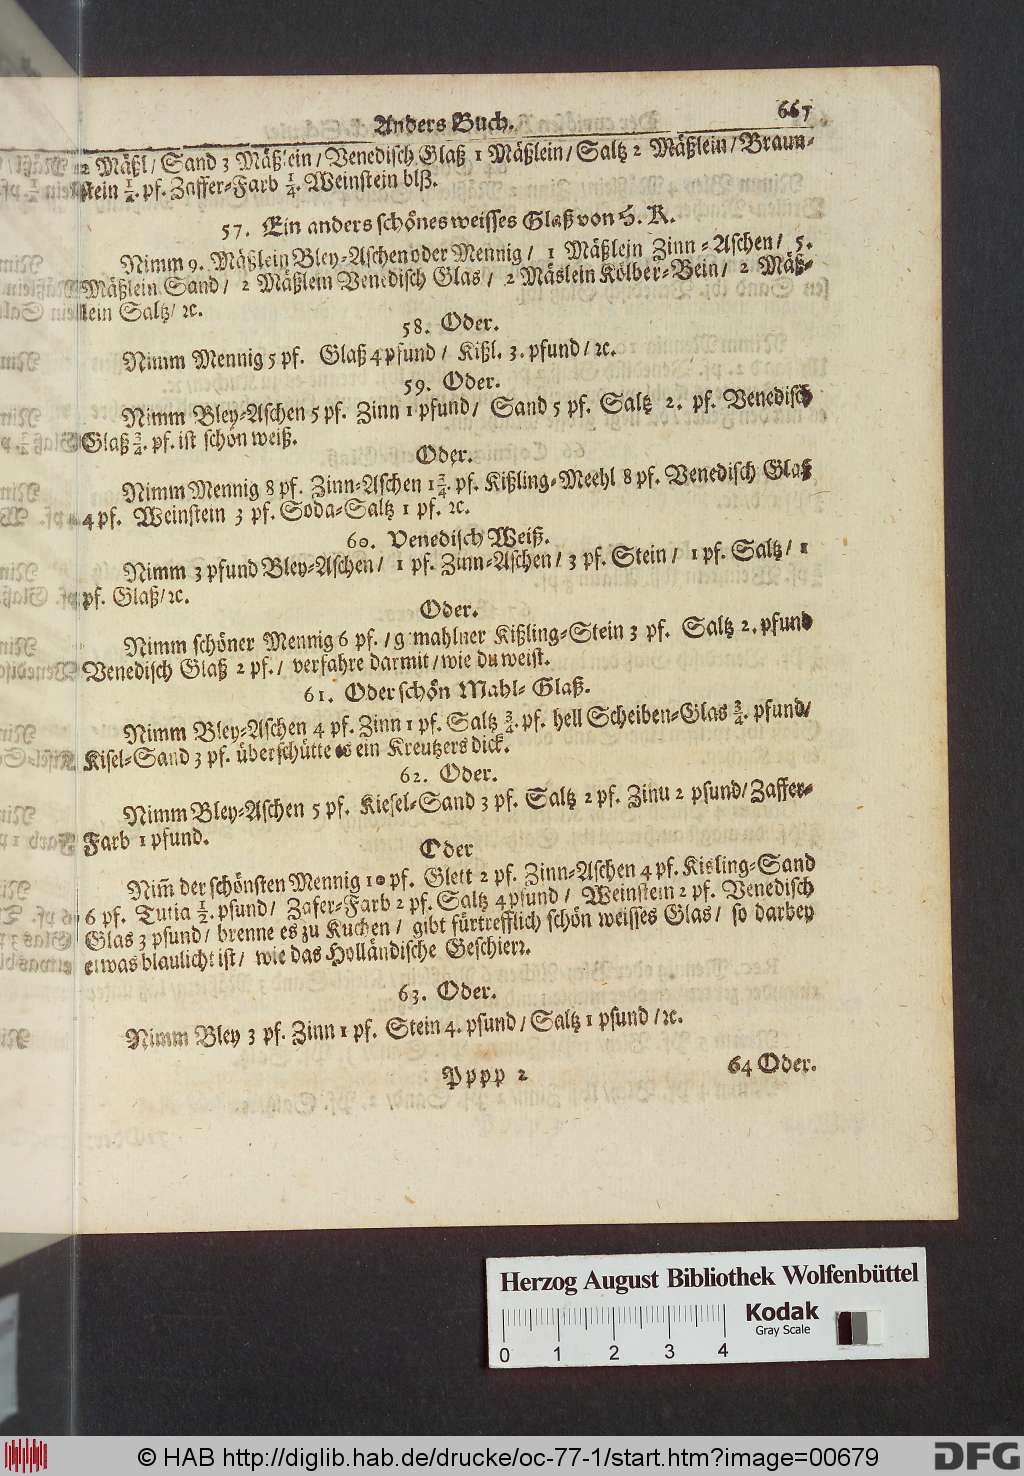 Anders Buch. 667
2 Mäßl/ Sand 3 Mäßlein/ Venedisch Glaß 1 Mäßlein/ Saltz 2 Mäßlein/ Braun-
stein ½. pf. Zaffer-Farb ¼. Weinstein blß.
57. Ein anders schönes weisses Glaß von H. K.
Nimm 9. Mäßlein Bley-Aschen oder Mennig/ 1 Mäßlein Zinn-Aschen/ 5.
Mäßlein Sand/ 2 Mäßlein Venedisch Glas/ 2 Mäslein Kölber-Bein/ 2 Mäß-
lein Saltz/ ꝛc.
58. Oder.
Nimm Mennig 5 pf. Glaß 4 pfund/ Kißl. 3. pfund/ ꝛc.
59. Oder.
Nimm Bley-Aschen 5 pf. Zinn 1 pfund/ Sand 5 pf. Saltz 2. pf. Venedisch
Glaß ¾. pf. ist schön weiß.
Oder.
Nimm Mennig 8 pf. Zinn-Aschen 1¾. pf. Kißling-Meehl 8 pf. Venedisch Glaß
4 pf. Weinstein 3 pf. Soda-Saltz 1 pf. ꝛc.
60. Venedisch Weiß.
Nimm 3 pfund Bley-Aschen/ 1 pf. Zinn-Aschen/ 3 pf. Stein/ 1 pf. Saltz/ 1
pf. Glaß/ ꝛc.
Oder.
Nimm schöner Mennig 6 pf./ g mahlner Kißling-Stein 3 pf. Saltz 2. pfund
Venedisch Glaß 2 pf./ verfahre darmit/ wie du weist.
61. Oder schön Mahl-Glaß.
Nimm Bley-Aschen 4 pf. Zinn 1 pf. Saltz ¾. pf. hell Scheiben-Glas ¾. pfund/
Kisel-Sand 3 pf. überschütte es ein Kreutzers dick.
62. Oder.
Nimm Bley-Aschen 5 pf. Kiesel-Sand 3 pf. Saltz 2 pf. Zinu 2 pfund/ Zaffer-
Farb 1 pfund.
Oder
Nim̄ der schönsten Mennig 10 pf. Glett 2 pf. Zinn-Aschen 4 pf. Kisling-Sand
6 pf. Tutia ½. pfund/ Zafer-Farb 2 pf. Saltz 4 pfund/ Weinstein 2 pf. Venedisch
Glas 3 pfund/ brenne es zu Kuchen/ gibt fürtrefflich schön weisses Glas/ so darbey
etwas blaulicht ist/ wie das Holländische Geschierꝛ.
63. Oder.
Nimm Bley 3 pf. Zinn 1 pf. Stein 4. pfund/ Saltz 1 pfund/ ꝛc.
Pppp 2 64 Oder.
Herzog August Bibliothek Wolfenbüttel
Kodak
Gray Scale
0 1 2 3 4
© HAB http://diglib.hab.de/drucke/oc-77-1/start.htm?image=00679
DFG